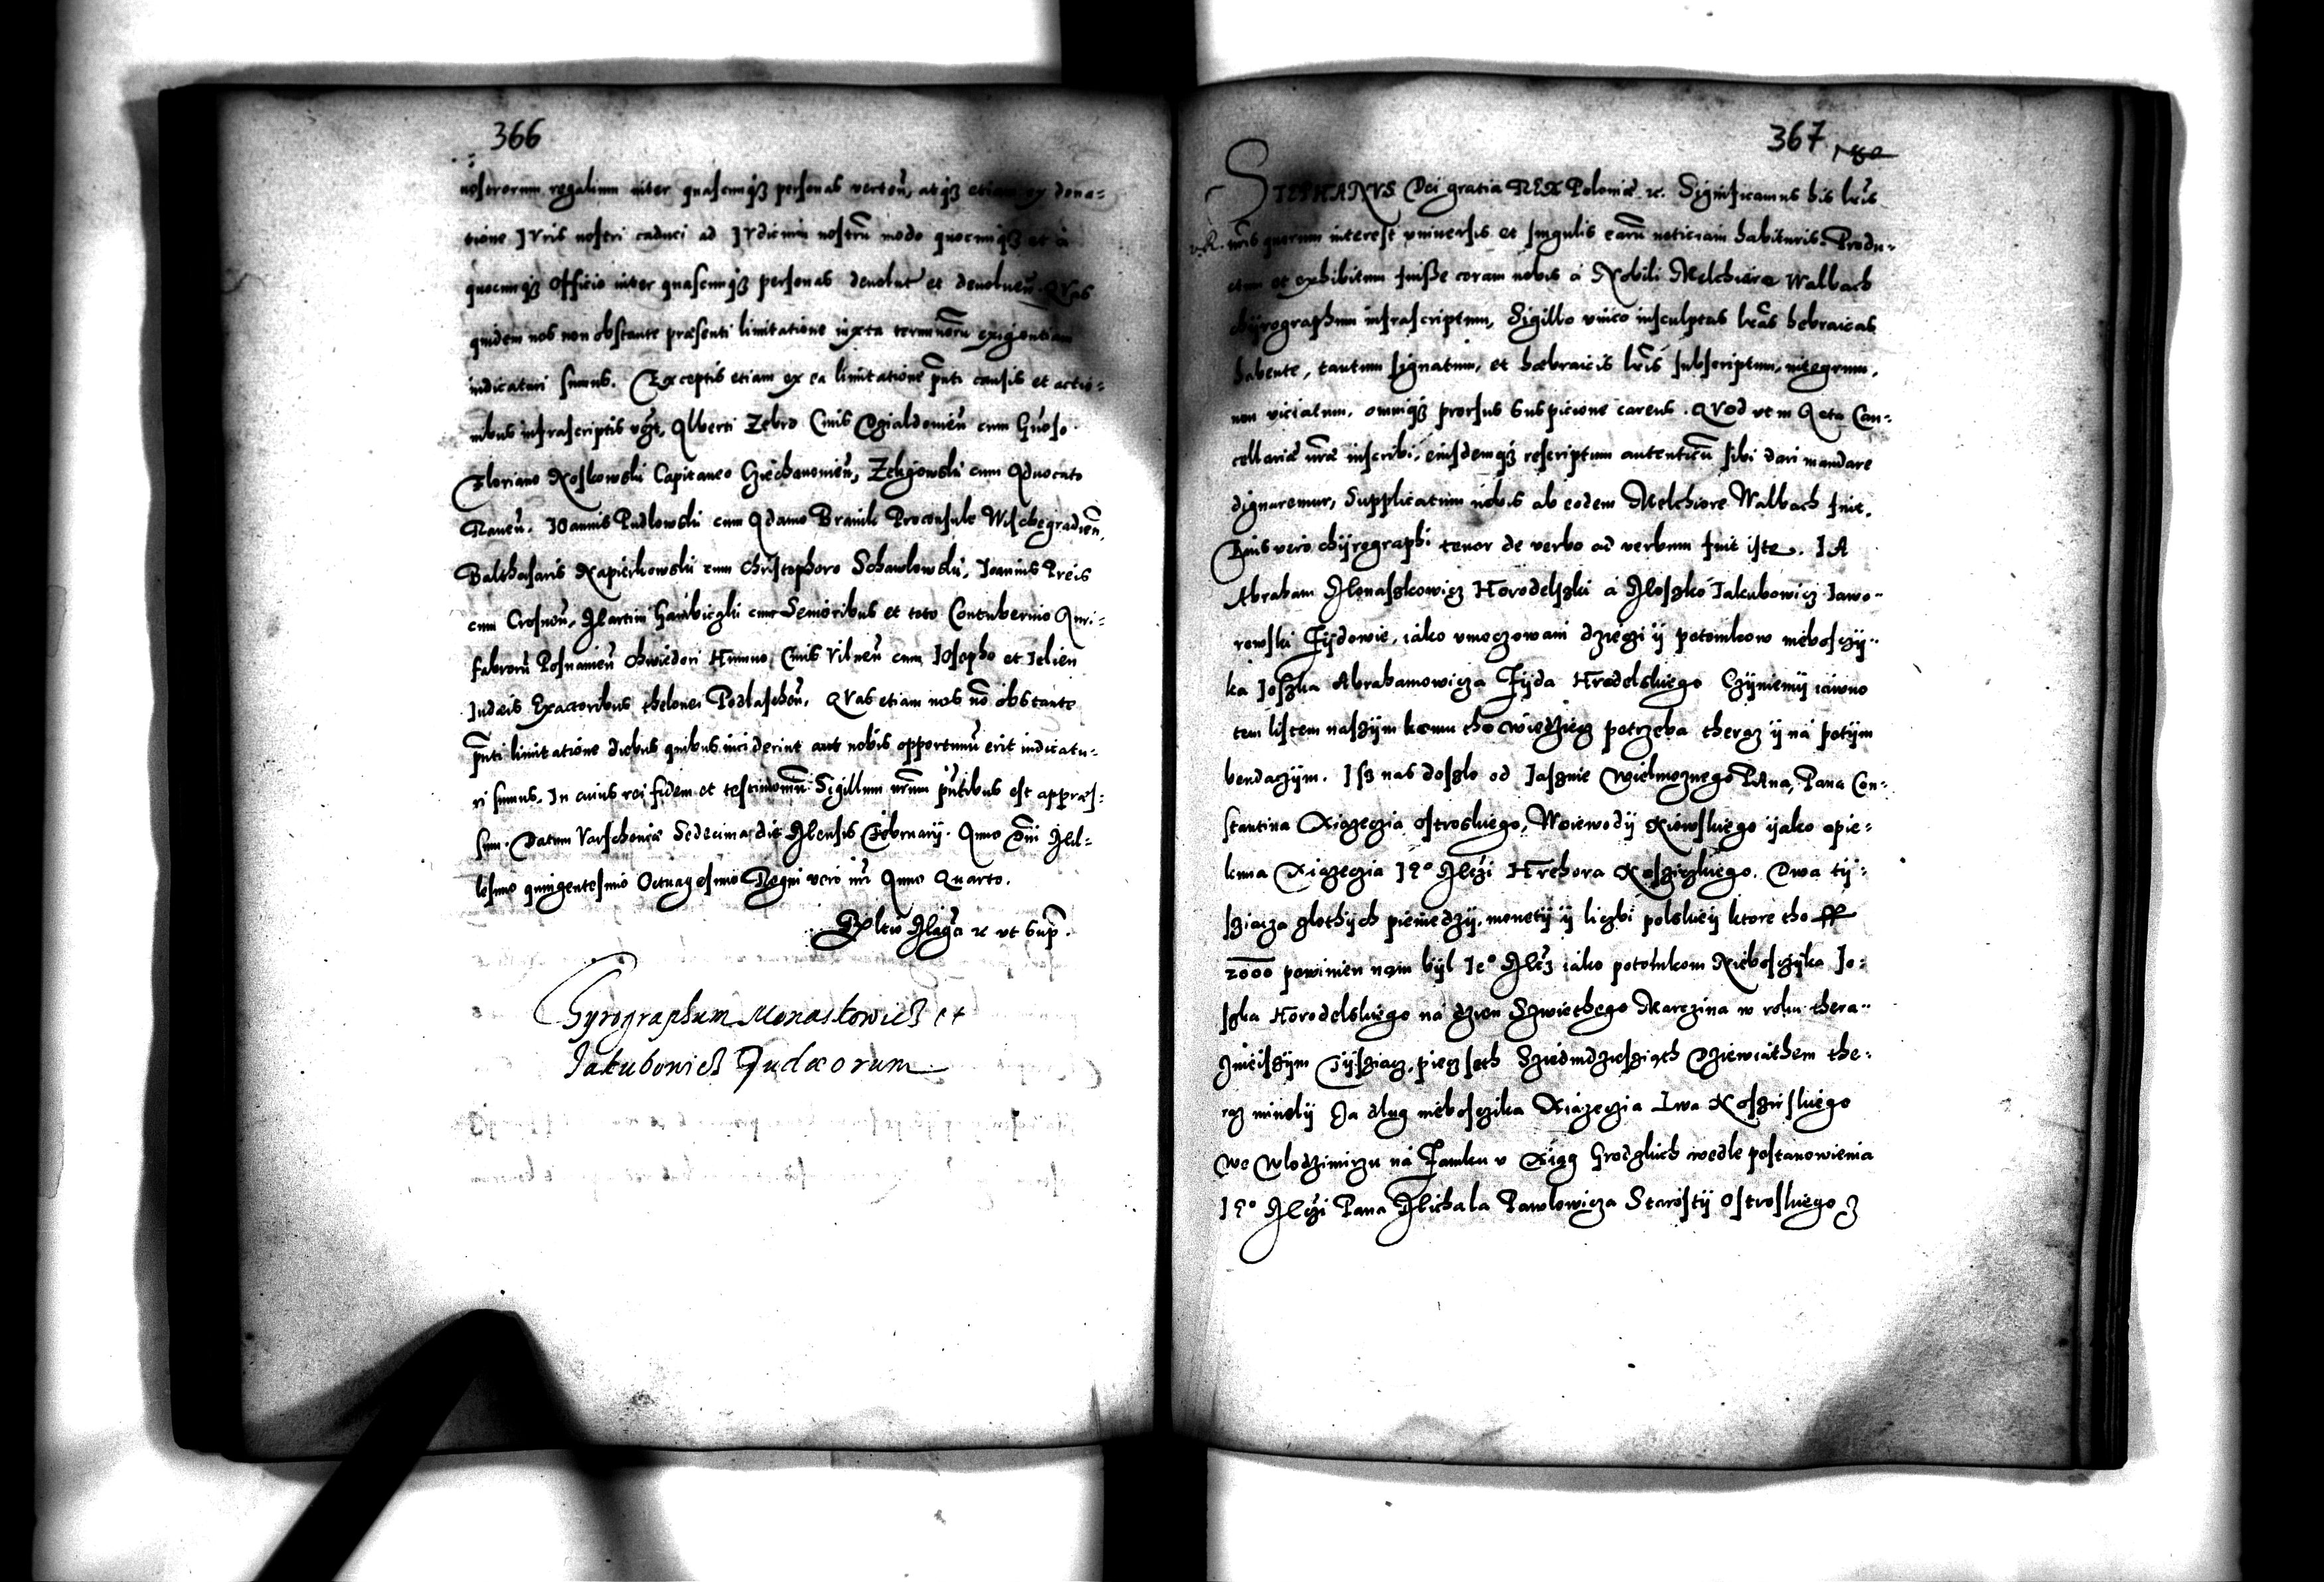 366
nostrorum regalium inter quascunqz personas verten̄, atqz etiam ex dona=
tione Iuris nostri caduci ad Iudicium nostrū modo quocunqz et à
quocunqz Officio inter quascunqz personas devolut et devolven̄. Quas
quidem nos non obstante præsenti limitatione iuxta terminorū exigentiam
iudicaturi sumus. Exceptis etiam ex ea limitatione p̄nti causis et actio=
nibus infrascriptis vꝫt, Alberti Zebro Civis cum Gn̄oso
Floriano Koskowski Capitaneo Cziechanovien̄, cum Advocato
Raven̄. Ioannis Pudlowski cum Adamo Proconsule Wischegradien̄,
Balthasaris Kapierkowski cum Christophoro Schawlowski, Ioannis
cum Crosnen̄, Martini cum Senioribus et toto Contubernio Auri=
fabrorū Posnanien̄ Civis Vilnen̄ cum Iosepho et
Iudæis Exactoribus thelonei Podlaschen̄, Quas etiam nos nō obstante
p̄nti limitatione diebus quibus inciderint aut nobis opportunū erit iudicatu=
ri sumus. In cuius rei fidem et testimoniū Sigillum nr̄um p̄ntibus est appræs=
sum. Datum Varschoviæ Sedecima die Mensis Februarij. Anno Dn̄i Mil=
lesimo quingentesimo Octuagesimo Regni vero nr̄i Anno Quarto.
ut sup̄.
Cyrographum Monaskowicz et
Jakubowicz Judæorum
367
STEPHANVS Dei gratia REX Poloniæ ꝛc. Significamus his lr̄is
nr̄is quorum interest vniversis et singulis earū noticiam habituris. Produ=
ctum et exhibitum fuisse coram nobis à Nobili Melchiore Walbach
chijrographum infrascriptum, Sigillo vnico insculptas lr̄as hebraicas
habente, tantum signatum, et hæbraicis lr̄is subscriptum, integrum,
non viciatum, omniqz prorsus suspicione carens. Quod vt in Acta Can=
cellariæ nr̄æ inscribi, eiusdemqz rescriptum autenticū sibi dari mandare
dignaremur, Supplicatum nobis ab eodem Melchiore Walbach fuit.
Cuius vero chijrographi tenor de verbo ad verbum fuit iste. IA
Abraham Monaszkowicz Horodelszki à Moszko Iakubowicz Iawo=
rowski Żijdowie, iako vmoczowani dzieczi ij potomkow niebosczij=
ka Joszka Abrahamowicza Żijda Hrodelskiego Czijniemij iawno
tem listem naszijm komu tho wiedziecz potrzeba theraz ij nà potijm
bendaczijm. Isz nas doszlo od Iasznie Wielmoznego PAna, Pana Con=
stantina Xiązęczia Ostroskiego, Woiewodij Kiowskiego ijako opie=
kuna Xiązęczia Ie° Mczi Hrehora Koszirzkiego. Dwa tij=
sziącza zlothijch pieniedzij, monetij ij liczbi polskieij ktore tho ff
2000 powinien nąm bijl Ie° Mcz iako potomkom Niebosczijka Jo=
szka Horodelskiego nà dzien Szwiethego Marczina w roku thera=
znieiszijm Tijsziącz, pięcz seth Sziedmdzieszięth Dziewiąthem the=
raz minelij Za dlug niebosczika Xiązęczia Lwa Koszirskiego
we Wlodzimirzu nà Zamku v Xiąg Grodzkich wedle postanowienia
Ie° Mczi Pana Michala Pawlowicza Starostij Ostroskiego z